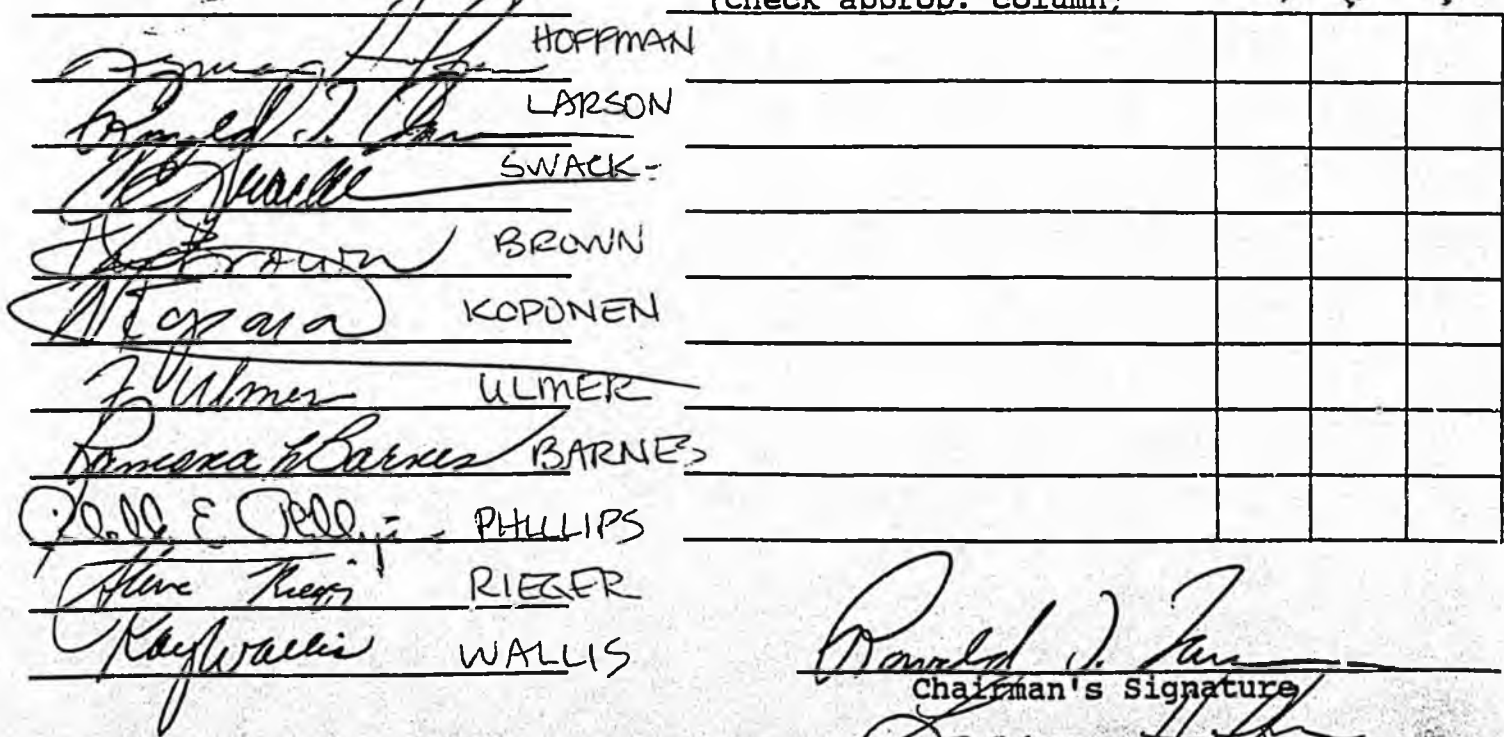 (Check approp. column)
HOFFMAN
Ronald J. Larson LARSON
SWACK-
Brown BROWN
KOPONEN
F Ulmer ULMER
Ramona L Barnes BARNES
E Phillips PHILLIPS
Steve Rieger RIEGER
Kay Wallis WALLIS
Ronald J. Larson
Chairman's Signature